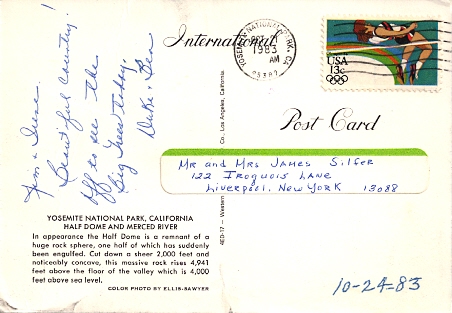 Jim & June
Beautiful Country!
Off to see the
Big Trees today.
Duke & Bea
YOSEMITE NATIONAL PARK, CALIFORNIA
HALF DOME AND MERCED RIVER
In appearance the Half Dome is a remnant of a
huge rock sphere, one half of which has suddenly
been engulfed. Cut down a sheer 2,000 feet and
noticeably concave, this massive rock rises 4,941
feet above the floor of the valley which is 4,000
feet above sea level.
COLOR PHOTO BY ELLIS-SAWYER
4ED-17 - Western
Co., Los Angeles, California
International
YOSEMITE NATIONAL PARK, CA
1983
AM
95389
USA
13c
Post Card
Mr and Mrs James Silfer
122 Iroquois Lane
Liverpool, New York 13088
10-24-83